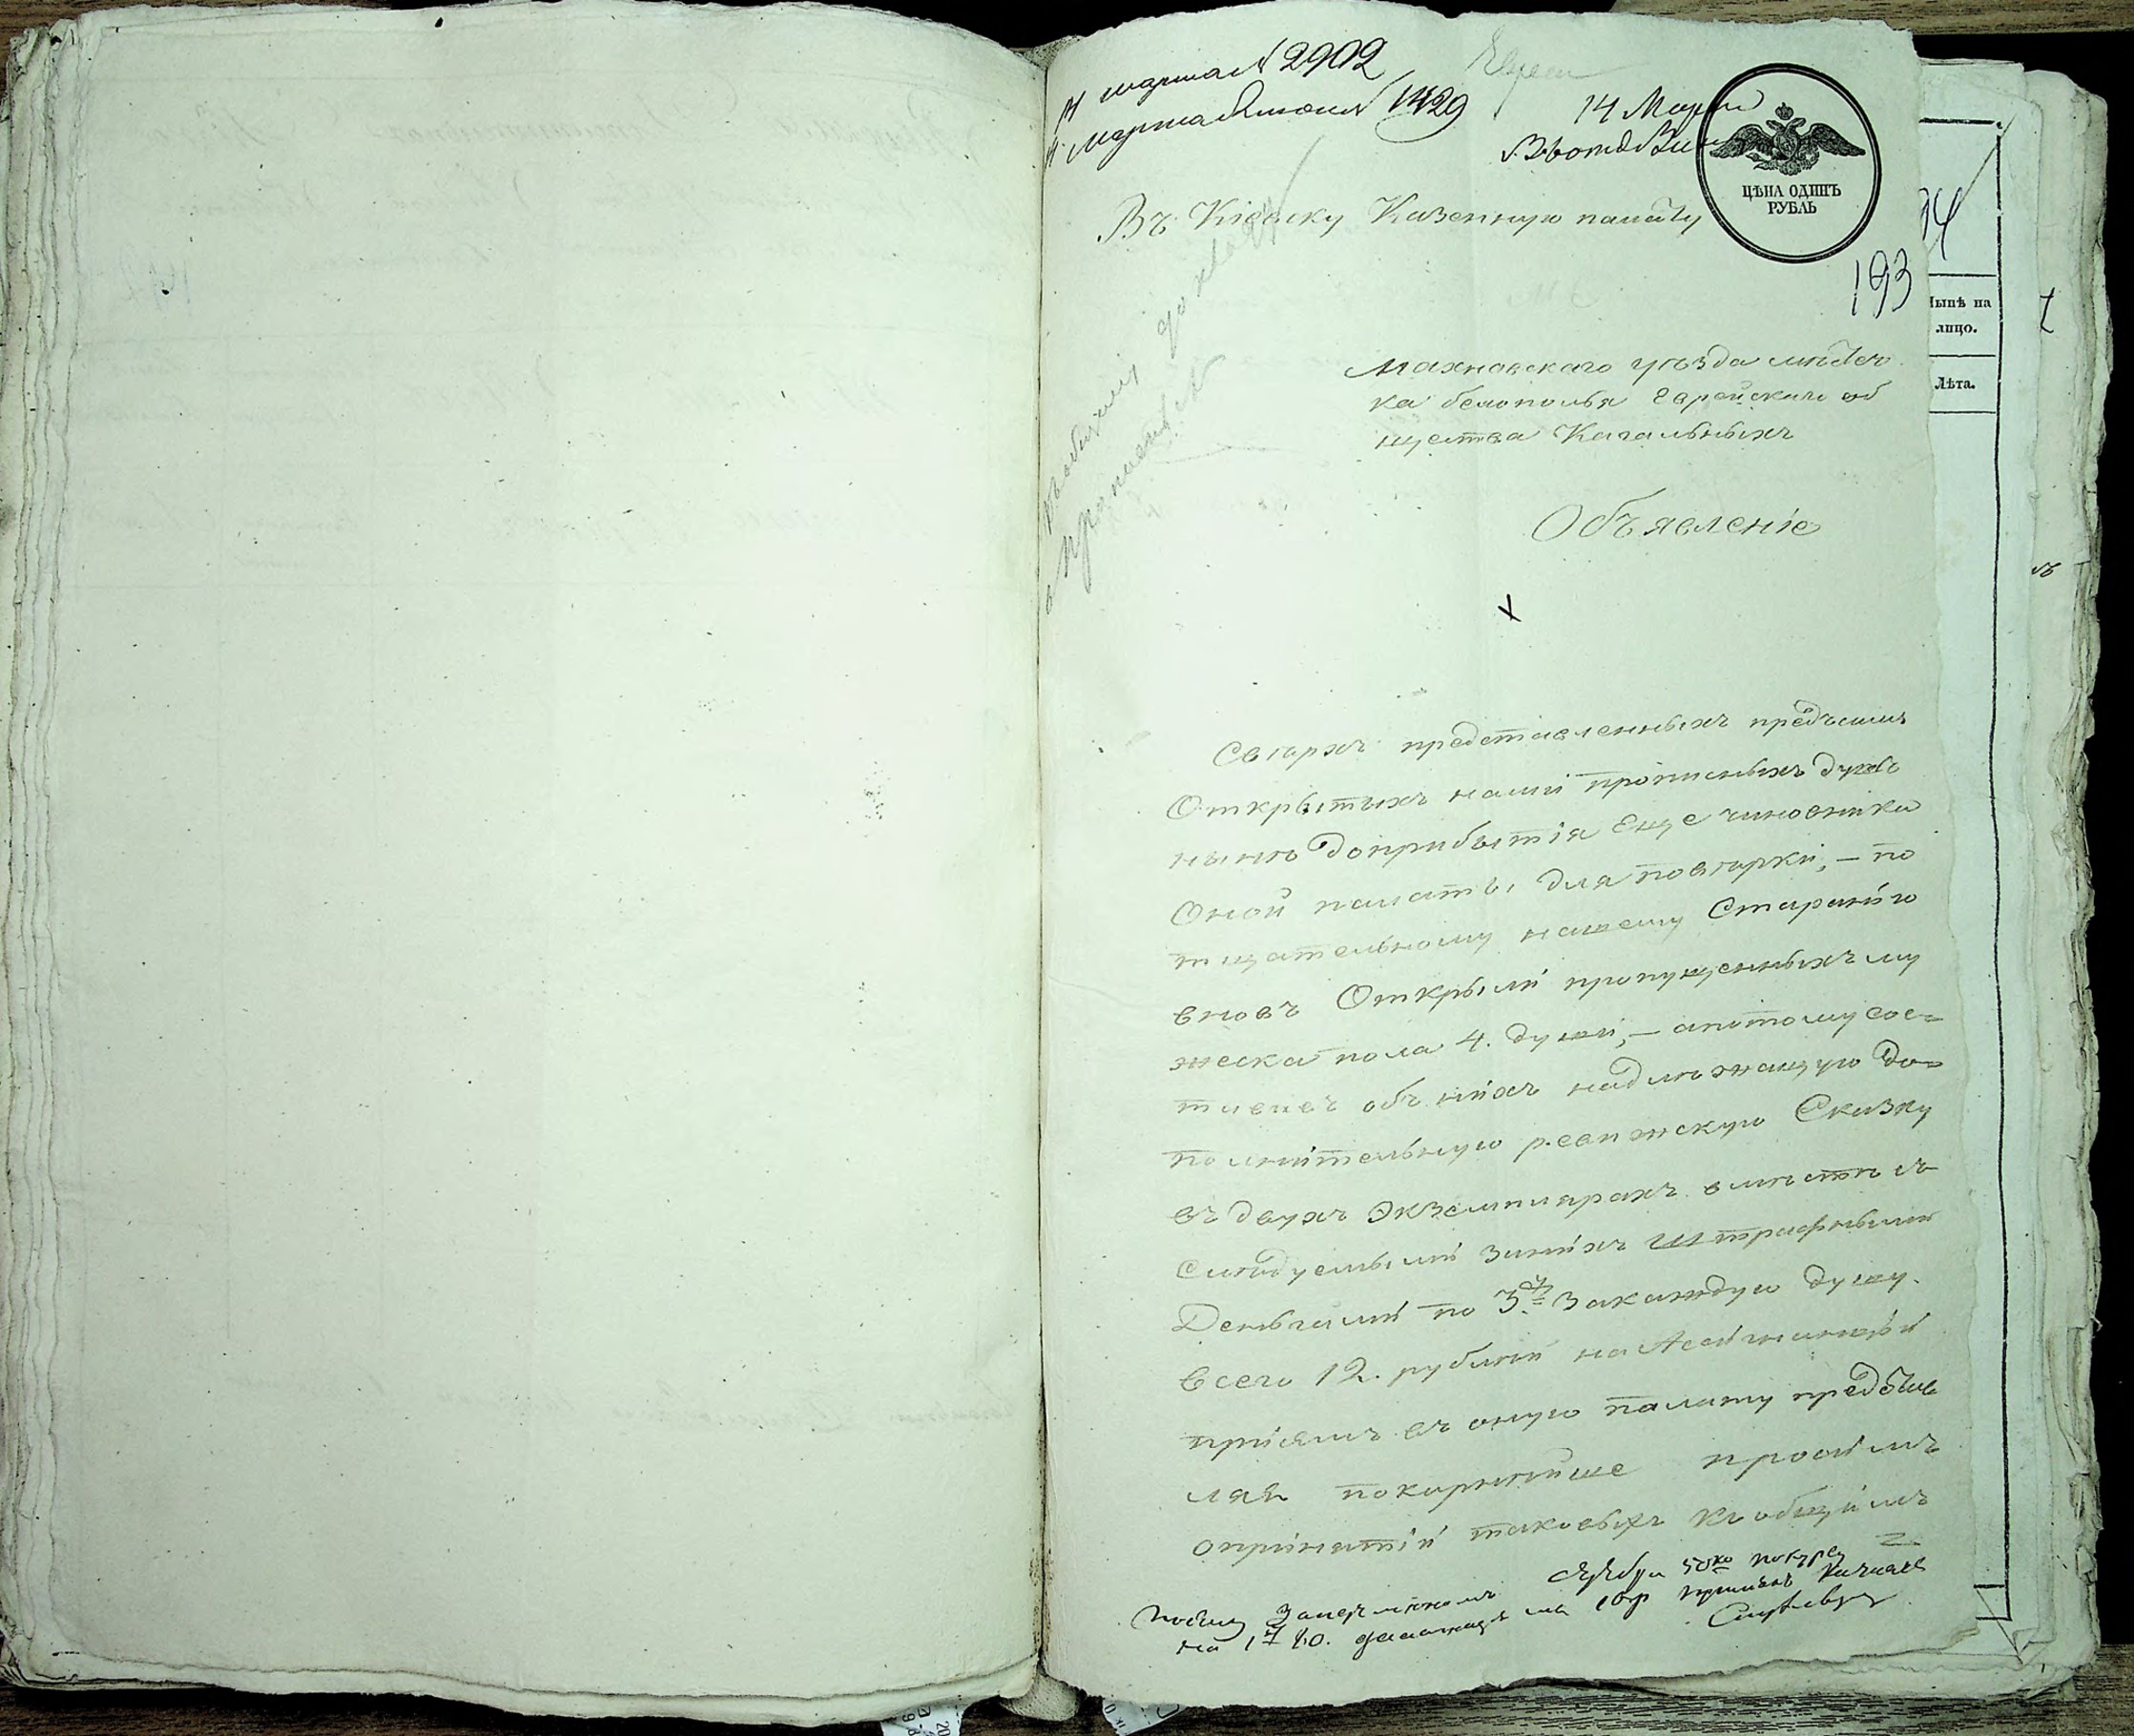 14 марта № 2902
14 Марта
ЦѢНА ОДИНЪ
РУБЛЬ
193
Въ Кіевску Казенную палату
Махновскаго уѣзда мѣстеч
ка белополья Еврейскаго об
щества Кагальныхъ
Объявленіе
ынѣ на
лицо.
Лѣта.
Свѣрхъ представленныхъ предъсимъ
Открытыхъ нами прописныхъ душъ
нынѣ доприбытія Еще чиновника
Оной палаты, для повѣрки, – по
тщательному нашему Старанію
вновъ Открыли пропущенныхъ му
жеска пола 4. души, – апотому сос=
тавивъ объ нихъ надлѣжащую До=
полнительную ревижскую Сказку
въ двухъ Экземплярахъ вместѣ съ
Слѣдуемыми заныхъ Штрафными
Деньгами по 3. закаждую душу.
всего 12. рублей на Ассигнаціи
при семъ въ оную палату предстов
ляя покорнѣйше просимъ
опринятіи таковыхъ къ общимъ